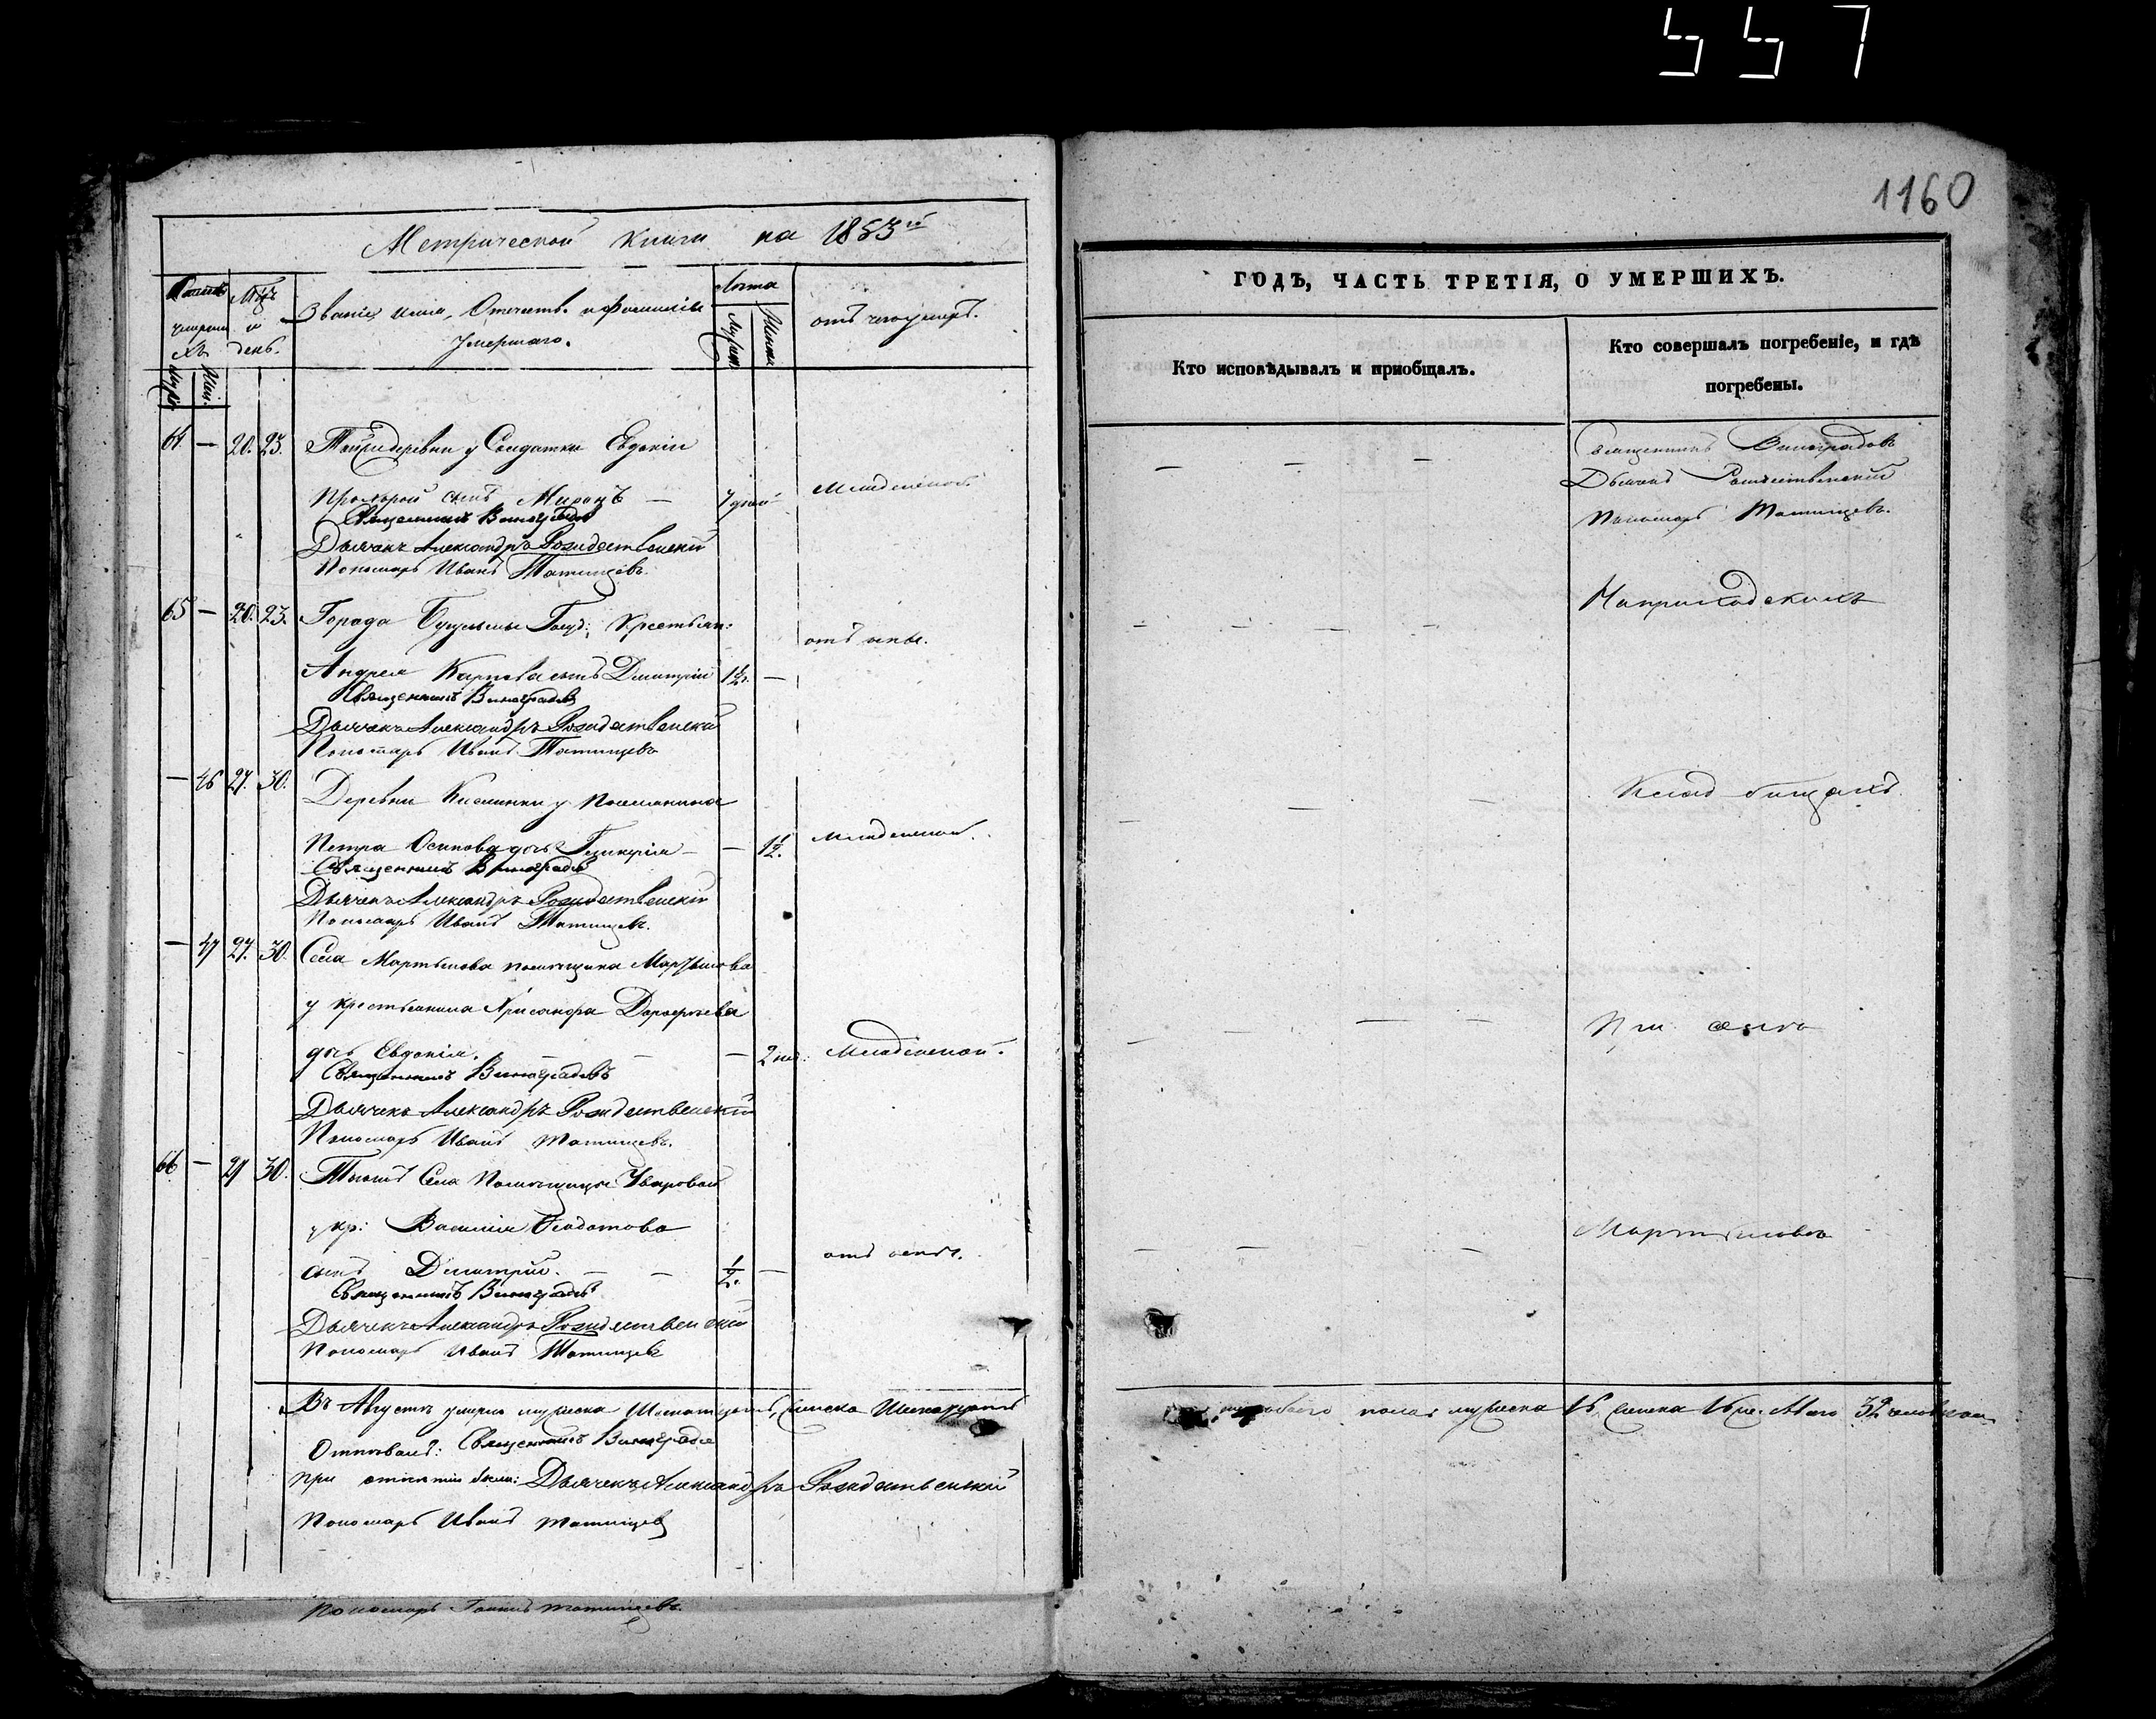 557
1160
Метрической книги на 1853й
Мцъ
и
день.
Званіе, имя, Отчеств. и фамилія
Умершаго.
Лѣта
отъ чего умеръ.
64 — 20. 23. у Солдатки Евдокіи
сынъ Миронъ — 7 дней
Младенческой
Священникъ Виноградовъ
Дьячекъ Александръ Рождественскій
Пономарь Иванъ Татищевъ
65 — 20. 23. Города Бугульмы Госуд: Крестьян:
Андрея Карпова сынъ Дмитрій 1½. —
отъ оспы.
Священникъ Виноградовъ
Дьячекъ Александръ Рождественскій
Пономарь Иванъ Татищевъ
— 46 27. 30. Деревни у
Петра Осипова дочь Гликерія — — 1½.
Младенческой.
Священникъ Виноградовъ
Дьячекъ Александръ Рождественскій
Пономарь Иванъ Татищевъ.
— 47 27. 30. Села Мартынова помѣщика Мартынова
у крестьянина Хрисанфа Дорофѣева
дочь Евдокія. — — — 2 нед:
Младенческой.
Священникъ Виноградовъ
Дьячекъ Александръ Рождественскій
Пономарь Иванъ Татищевъ.
66 — 29 30. Села Помѣщицы Уваровой
у кр: Василія Федотова
сынъ Димитрій. — — ½. —
отъ оспы.
Священникъ Виноградовъ
Дьячекъ Александръ Рождественскій
Пономарь Иванъ Татищевъ
Въ Августѣ умерло мужеска Шестнадцать, женска Шестнадцать
Отпѣвалъ: Священникъ Виноградовъ
при отпѣтіи были: Дьячекъ Александръ Рождественскій
Пономарь Иванъ Татищевъ
Пономарь Татищевъ.
ГОДЪ, ЧАСТЬ ТРЕТІЯ, О УМЕРШИХЪ.
Кто исповѣдывалъ и пріобщалъ.
Кто совершалъ погребеніе, и гдѣ
погребены.
Священникъ Виноградовъ
Дьячекъ Рождественскій
Пономарь Татищевъ.
На приходскихъ
Кладбищахъ.
При селѣ
Мартыновѣ
обоего пола: мужеска 16, женска 16, 32 человѣка.